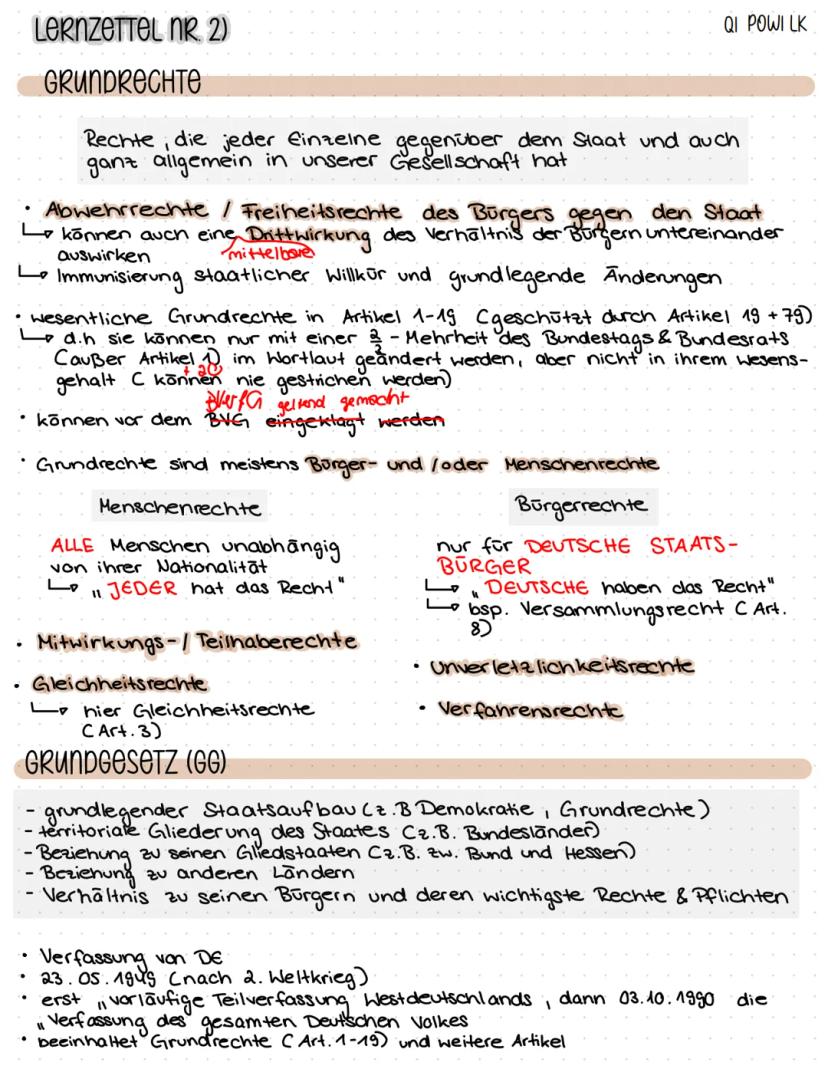 LERNZETTEL NR. 2)
Q1 POWI LK
GRUNDRECHTE
Rechte, die jeder Einzelne gegenüber dem Staat und auch
ganz allgemein in unserer Gesellschaft hat
• Abwehrrechte / Freiheitsrechte des Bürgers gegen den Staat
↳ können auch eine Drittwirkung des Verhältnis der Bürgern untereinander
auswirken mittelbare
↳ Immunisierung staatlicher Willkür und grundlegende Änderungen
• wesentliche Grundrechte in Artikel 1-19 (geschützt durch Artikel 19 + 79)
↳ d.h sie können nur mit einer 2/3 - Mehrheit des Bundestags & Bundesrats
(außer Artikel 1) im Wortlaut geändert werden, aber nicht in ihrem Wesens-
+ 20
gehalt (können nie gestrichen werden)
BVerfG geltend gemacht
• können vor dem BVG eingeklagt werden
• Grundrechte sind meistens Bürger- und /oder Menschenrechte
Menschenrechte
ALLE Menschen unabhängig
von ihrer Nationalität
↳ „JEDER hat das Recht"
Bürgerrechte
nur für DEUTSCHE STAATS-
BÜRGER
↳ „DEUTSCHE haben das Recht"
↳ bsp. Versammlungsrecht (Art.
8)
• Mitwirkungs-/Teilhaberechte
• Gleichheitsrechte
↳ hier Gleichheitsrechte
(Art.3)
• Unverletzlichkeitsrechte
• Verfahrensrechte
GRUNDGESETZ (GG)
- grundlegender Staatsaufbau (z.B Demokratie, Grundrechte)
- territoriale Gliederung des Staates (z.B. Bundesländer)
- Beziehung zu seinen Gliedstaaten (z.B. zw. Bund und Hessen)
- Beziehung zu anderen Ländern
- Verhältnis zu seinen Bürgern und deren wichtigste Rechte & Pflichten
• Verfassung von DE
• 23.05.1949 (nach 2. Weltkrieg)
• erst „vorläufige Teilverfassung Westdeutschlands, dann 03.10.1990 die
„Verfassung des gesamten Deutschen Volkes
• beeinhaltet Grundrechte (Art.1-19) und weitere Artikel